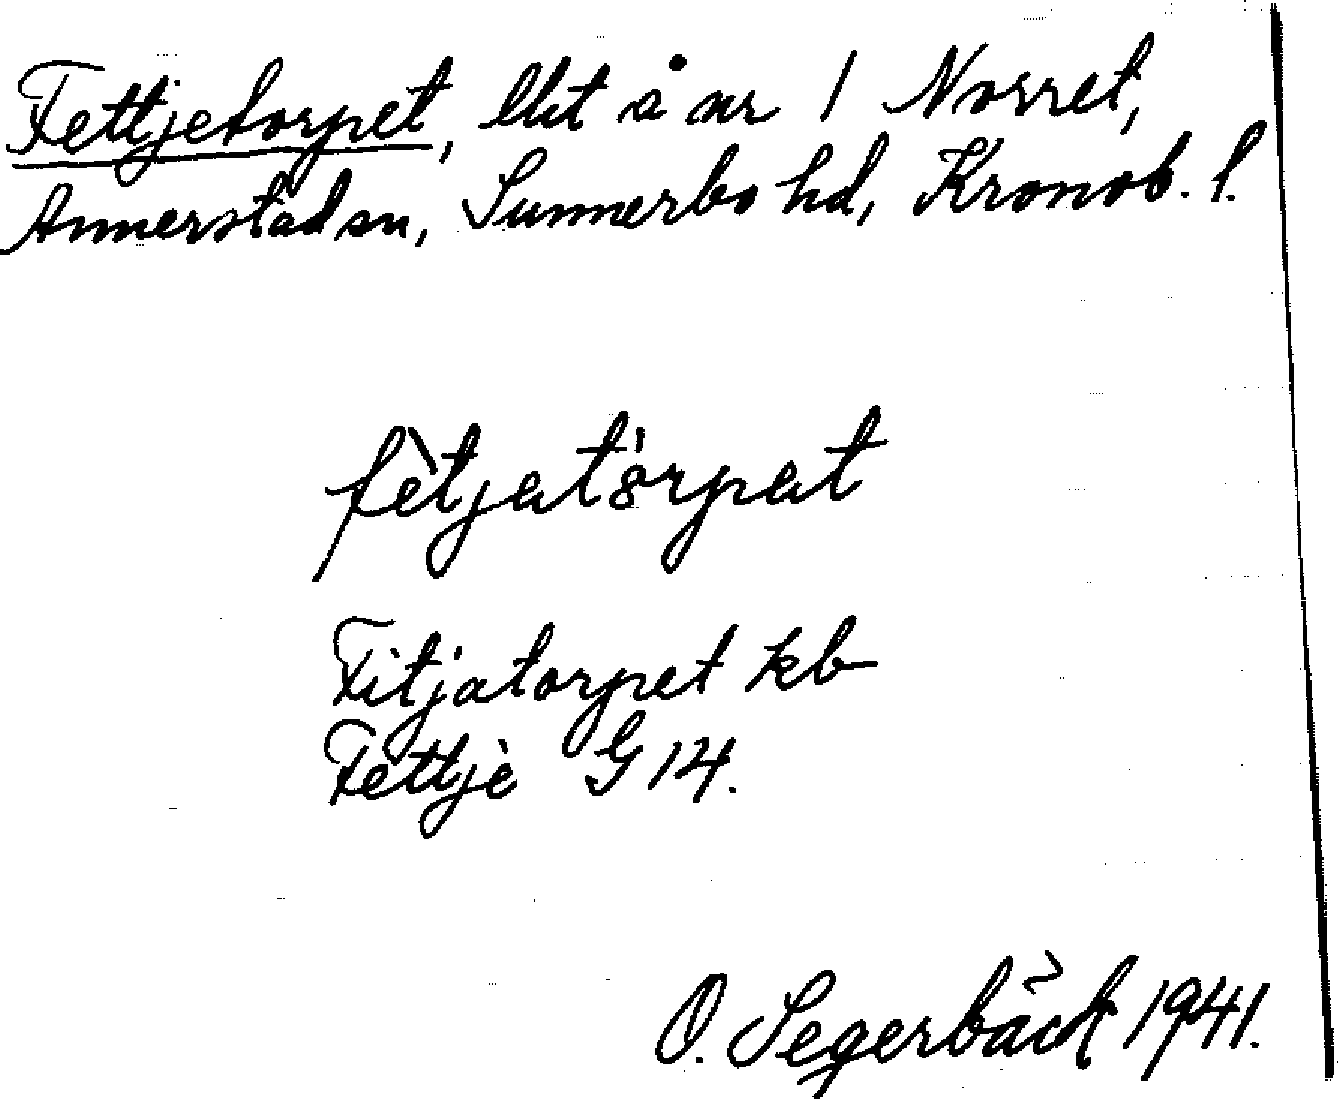 Fettjetorpet, lht å nr 1 Norret,
Annerstad sn, Sunnerbo hd, Kronob. l.
fètjatórpat
Fitjatorpet kb
Fettje G 14.
O. Segerbäck 1941.